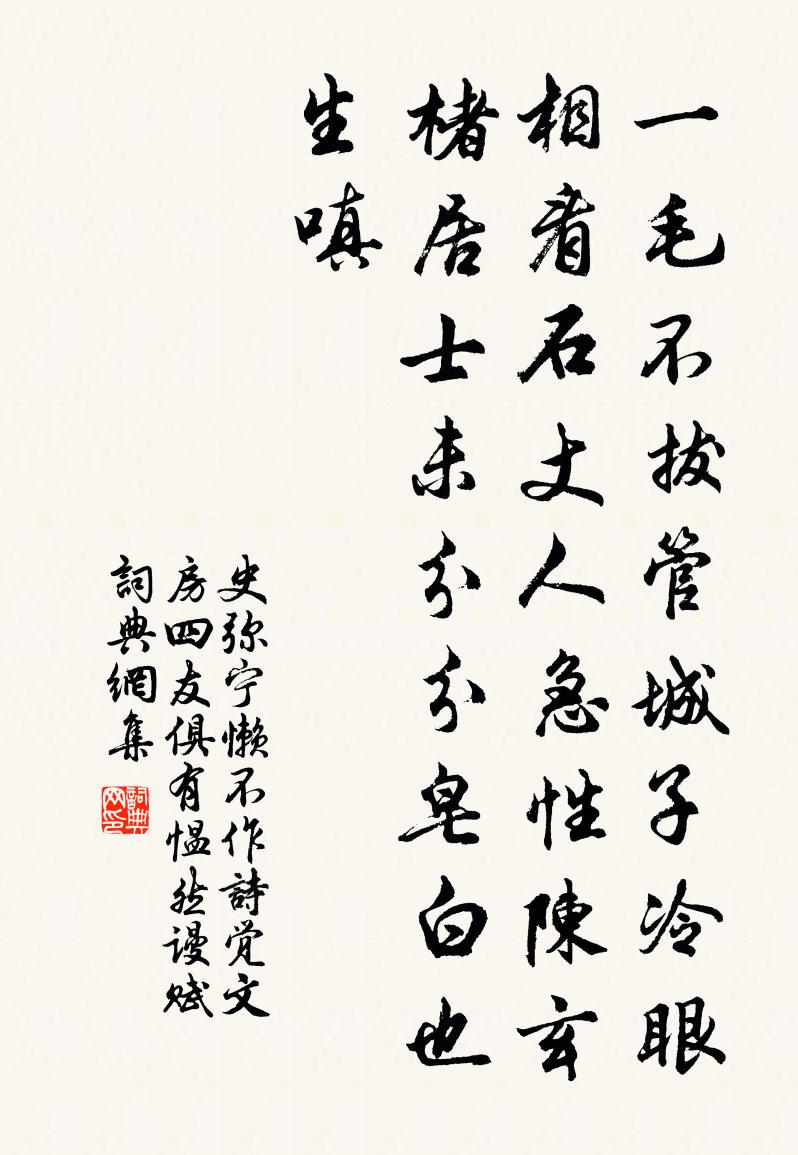 一毛不拔管城子冷眼
相看石丈人急性陳玄
楮居士未分分皂白也
生嗔
史弥宁懒不作詩觉文
房四友俱有愠然谩赋
詞典網集
詞典网印